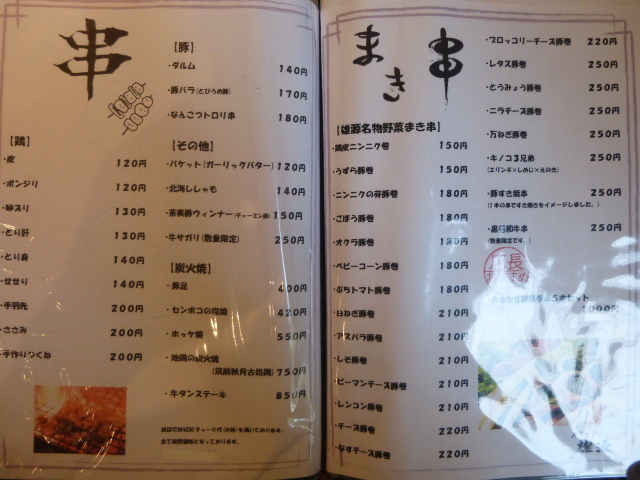 串
【鶏】
・皮 120円
・ボンジリ 120円
・砂ズリ 130円
・とり肝 130円
・とり身 140円
・せせり 140円
・手羽先 200円
・ささみ 200円
・手作りつくね 200円
【豚】
・ダルム 140円
・豚バラ(とびうめ豚) 170円
・なんこつトロリ串 180円
【その他】
・バケット(ガーリックバター) 120円
・北海ししゃも 140円
・茶美豚ウィンナー(チャーミー豚) 150円
・牛サガリ(数量限定) 250円
【炭火焼】
・豚足 400円
・センポコの塩焼 420円
・ホッケ焼 550円
・地鶏の炭火焼
(筑前秋月古処鶏) 750円
・牛タンステーキ 850円
全て税別価格となっております。
まき串
【雄源名物野菜まき串】
・鶏皮ニンニク巻 150円
・うずら豚巻 150円
・ニンニクの芽豚巻 180円
・ごぼう豚巻 180円
・オクラ豚巻 180円
・ベビーコーン豚巻 180円
・ぷちトマト豚巻 180円
・白ねぎ豚巻 210円
・アスパラ豚巻 210円
・しそ豚巻 210円
・ピーマンチーズ豚巻 210円
・レンコン豚巻 210円
・チーズ豚巻 220円
・なすチーズ豚巻 220円
・ブロッコリーチーズ豚巻 220円
・レタス豚巻 250円
・とうみょう豚巻 250円
・ニラチーズ豚巻 250円
・万ねぎ豚巻 250円
・キノコ3兄弟 250円
(エリンギ×しめじ×えのき)
・豚すき焼串 250円
(1本の串ですき焼きをイメージしました。)
・黒毛和牛串 250円
(数量限定です。)
5本セット
円